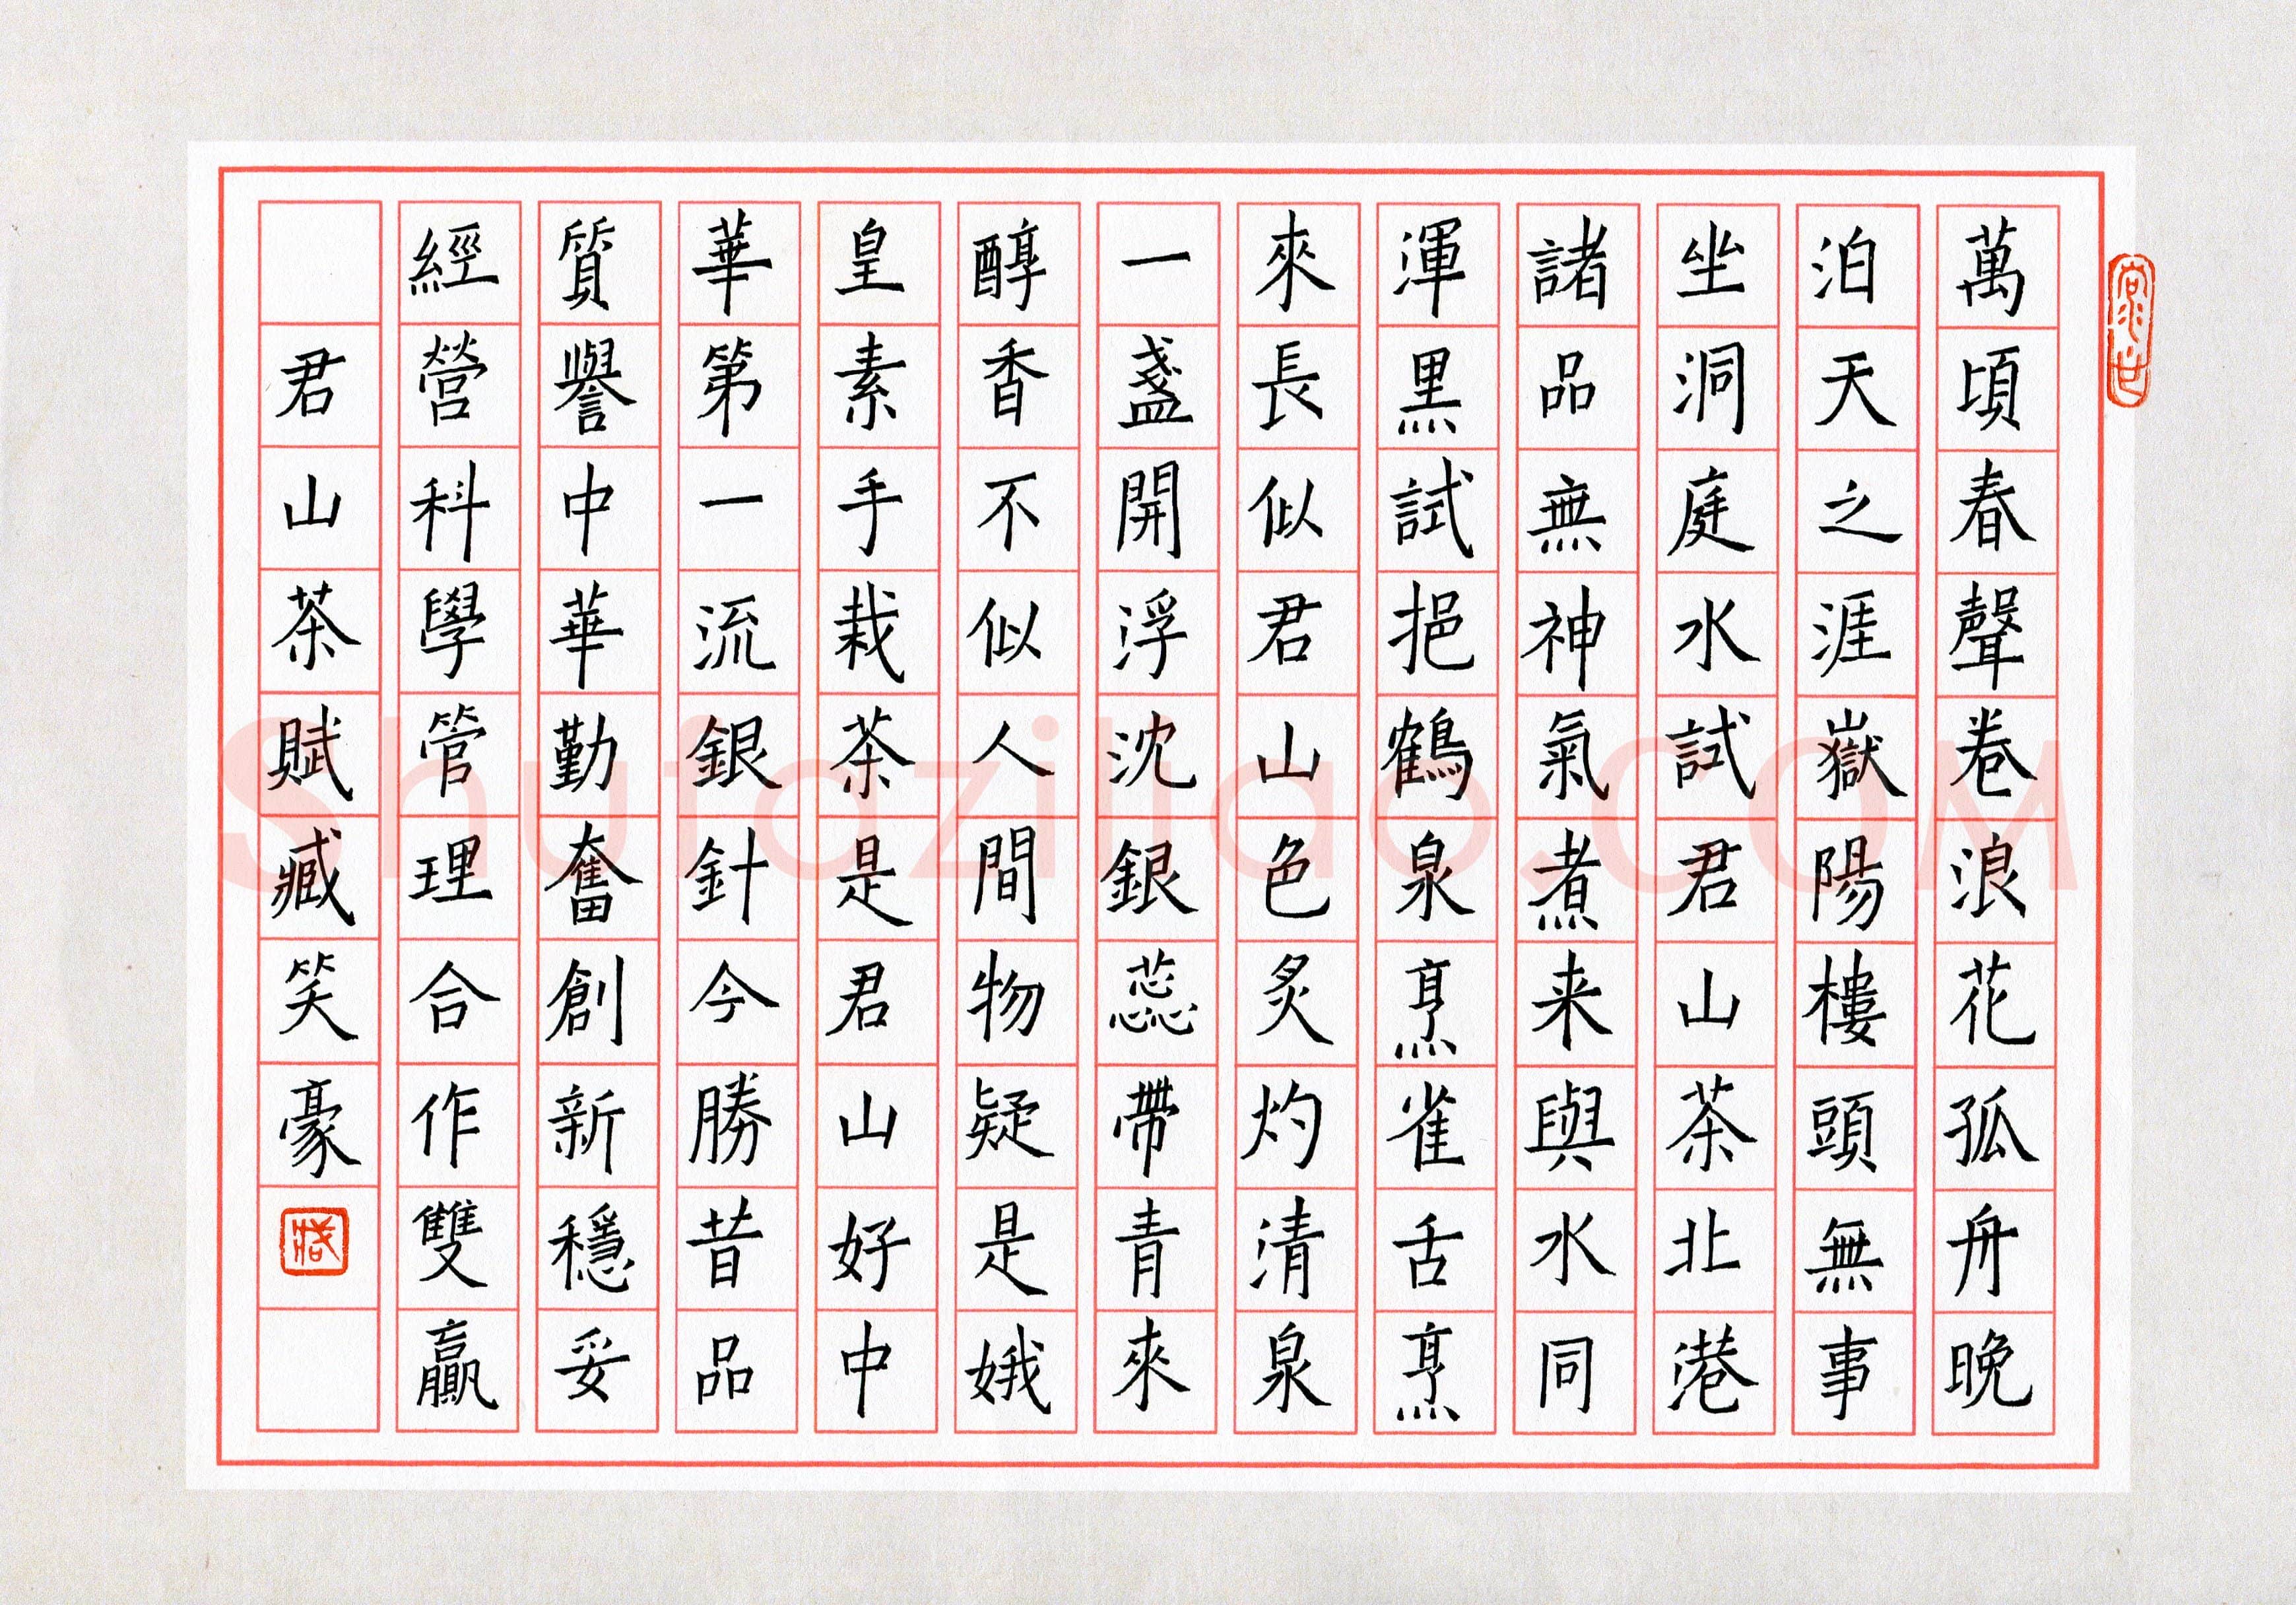 萬頃春聲卷浪花孤舟晚
泊天之涯嶽陽樓頭無事
坐洞庭水試君山茶北港
諸品無神氣煮来與水同
渾黑試挹鶴泉烹雀舌烹
來長似君山色炙灼清泉
一盞開浮沈銀蕊帶青來
醇香不似人間物疑是娥
皇素手栽茶是君山好中
華第一流銀針今勝昔品
質譽中華勤奮創新穩妥
經營科學管理合作雙贏
君山茶賦臧笑豪
臧
shufaziliao.COM